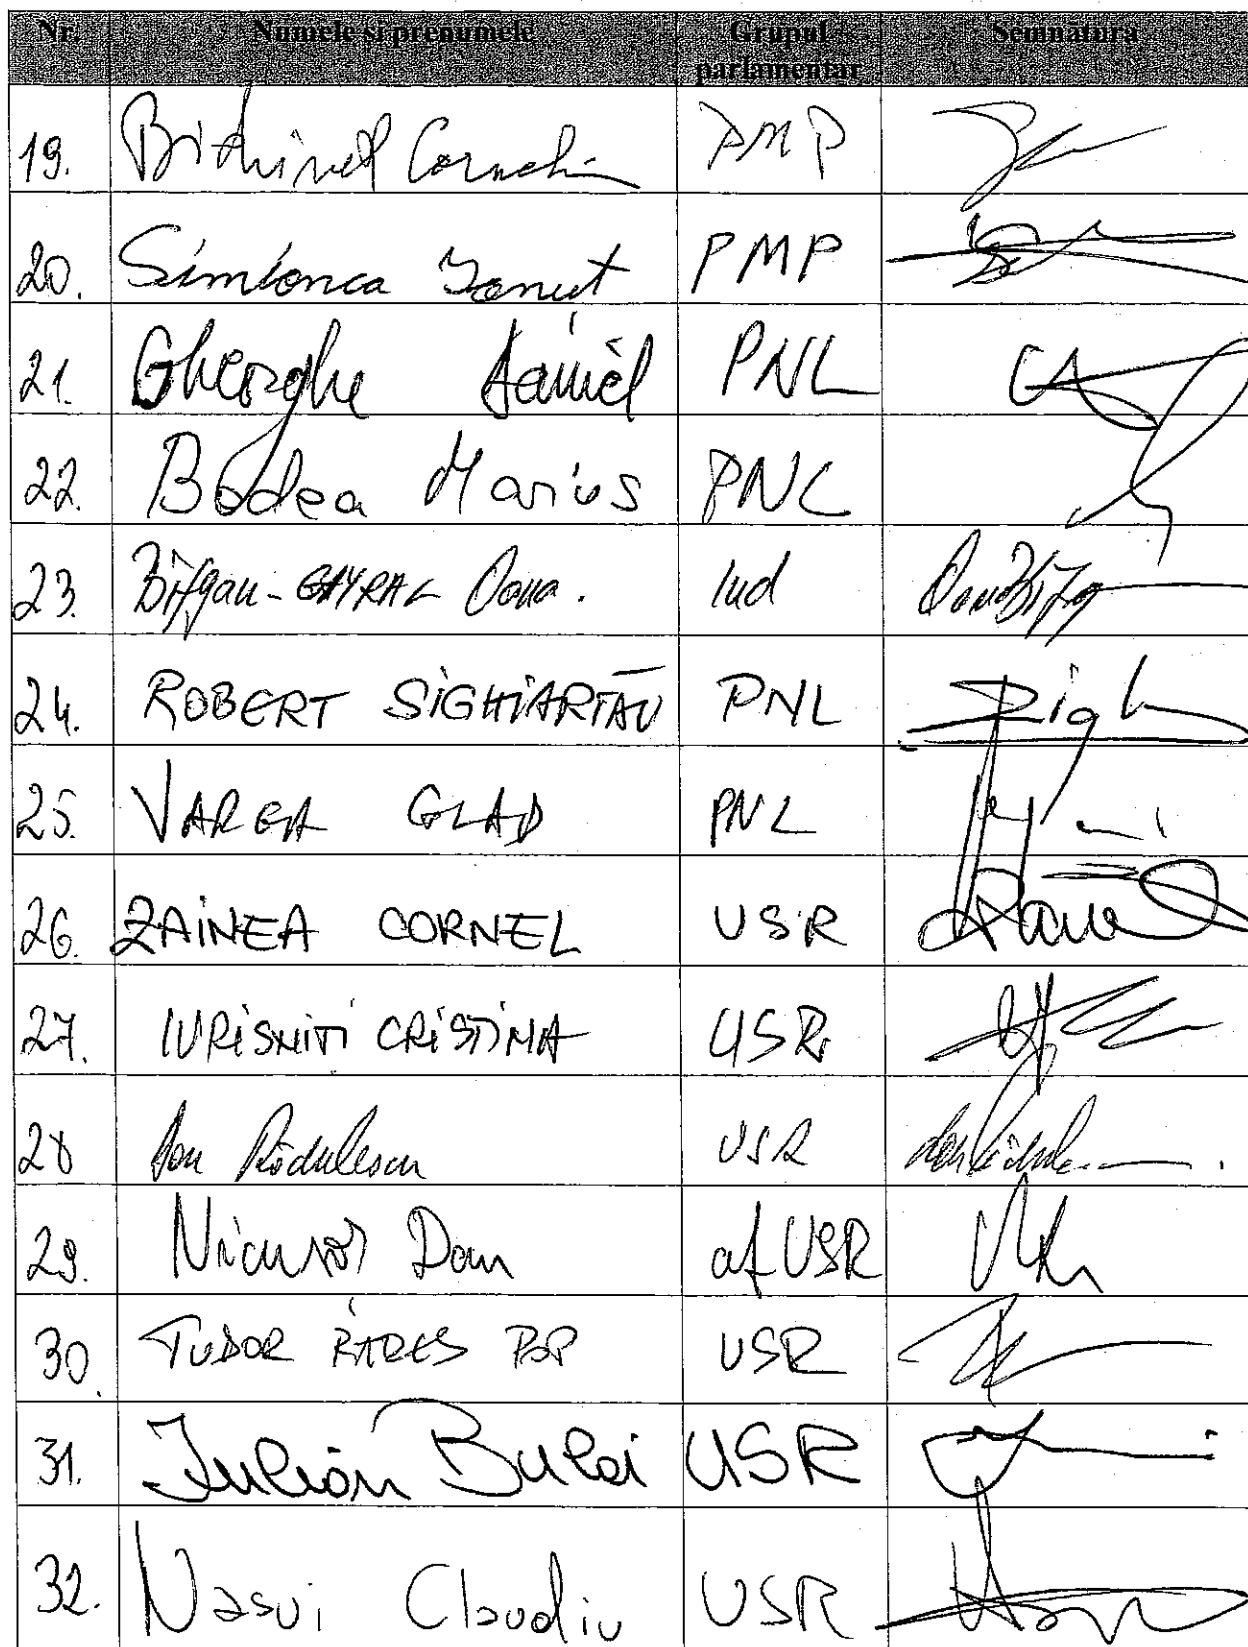 Nr. Numele si prenumele Grupul parlamentar Semnatura
19. Bichinet Corneliu PMP
20. Simionca Ionut PMP
21. Gheorghe Daniel PNL
22. Bodea Marius PNL
23. Bîzgan-GAYRAL Oana. Ind
24. ROBERT SIGHIARTĂU PNL
25. VARGA GLAD PNL
26. ZAINEA CORNEL USR
27. IURISNITI CRISTINA USR
28 Dan Rădulescu USR
29. Nicusor Dan af USR
30. TUDOR RARES POP USR
31. Iulian Bulai USR
32. Nasui Claudiu USR